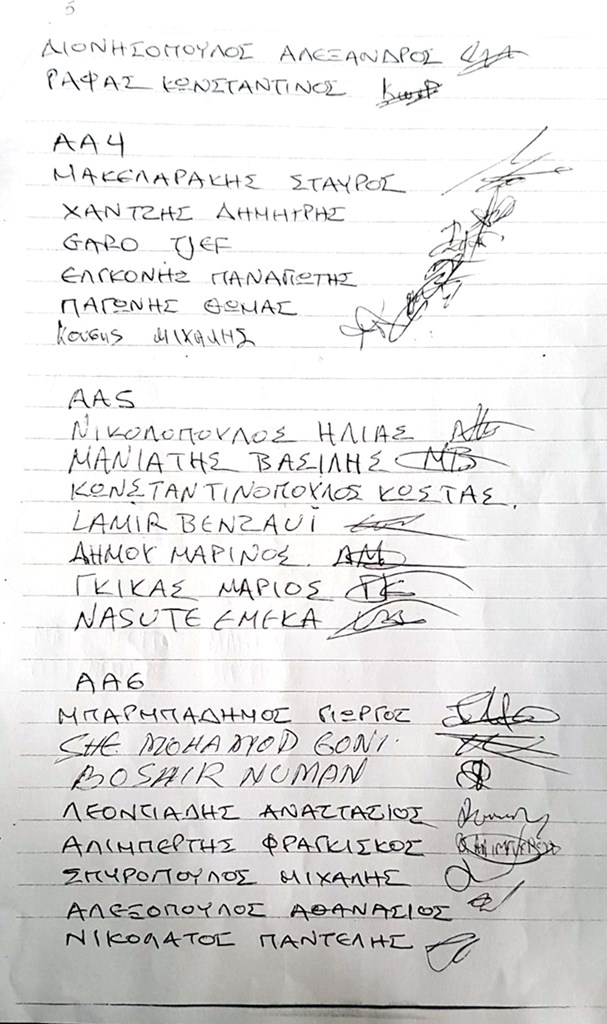 5
ΔΙΟΝΗΣΟΠΟΥΛΟΣ ΑΛΕΞΑΝΔΡΟΣ
ΡΑΦΑΣ ΚΩΝΣΤΑΝΤΙΝΟΣ
ΑΑ4
ΜΑΚΕΛΑΡΑΚΗΣ ΣΤΑΥΡΟΣ
ΧΑΝΤΖΗΣ ΔΗΜΗΤΡΗΣ
GARO TJEF
ΕΛΓΚΟΝΗΣ ΠΑΝΑΓΙΩΤΗΣ
ΠΑΓΩΝΗΣ ΘΩΜΑΣ
Κουσης ΜΙΧΑΛΗΣ
ΑΑ5
ΝΙΚΟΛΟΠΟΥΛΟΣ ΗΛΙΑΣ
ΜΑΝΙΑΤΗΣ ΒΑΣΙΛΗΣ ΜΒ
ΚΩΝΣΤΑΝΤΙΝΟΠΟΥΛΟΣ ΚΩΣΤΑΣ.
LAMIR BENZAUI
ΔΗΜΟΥ ΜΑΡΙΝΟΣ ΔΜ
ΓΚΙΚΑΣ ΜΑΡΙΟΣ ΓΚ
NASUTE EMEKA
ΑΑ6
ΜΠΑΡΜΠΑΔΗΜΟΣ ΓΙΩΡΓΟΣ
SHE MOHAMOD GONI.
BOSHIR NUMAN
ΛΕΟΝΤΙΑΔΗΣ ΑΝΑΣΤΑΣΙΟΣ
ΑΛΙΜΠΕΡΤΗΣ ΦΡΑΓΚΙΣΚΟΣ
ΣΠΥΡΟΠΟΥΛΟΣ ΜΙΧΑΛΗΣ
ΑΛΕΞΟΠΟΥΛΟΣ ΑΘΑΝΑΣΙΟΣ
ΝΙΚΟΛΑΤΟΣ ΠΑΝΤΕΛΗΣ